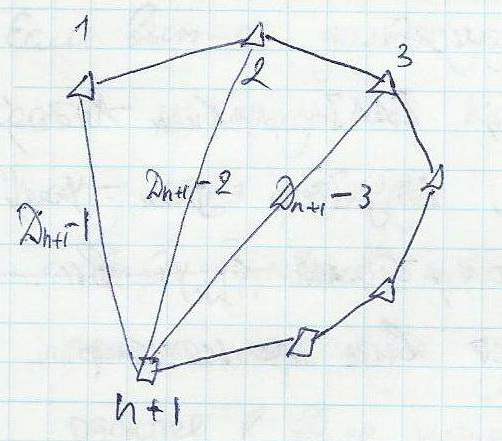 1
2
3
Dn+1-2
Dn+1-3
Dn+1-1
n+1